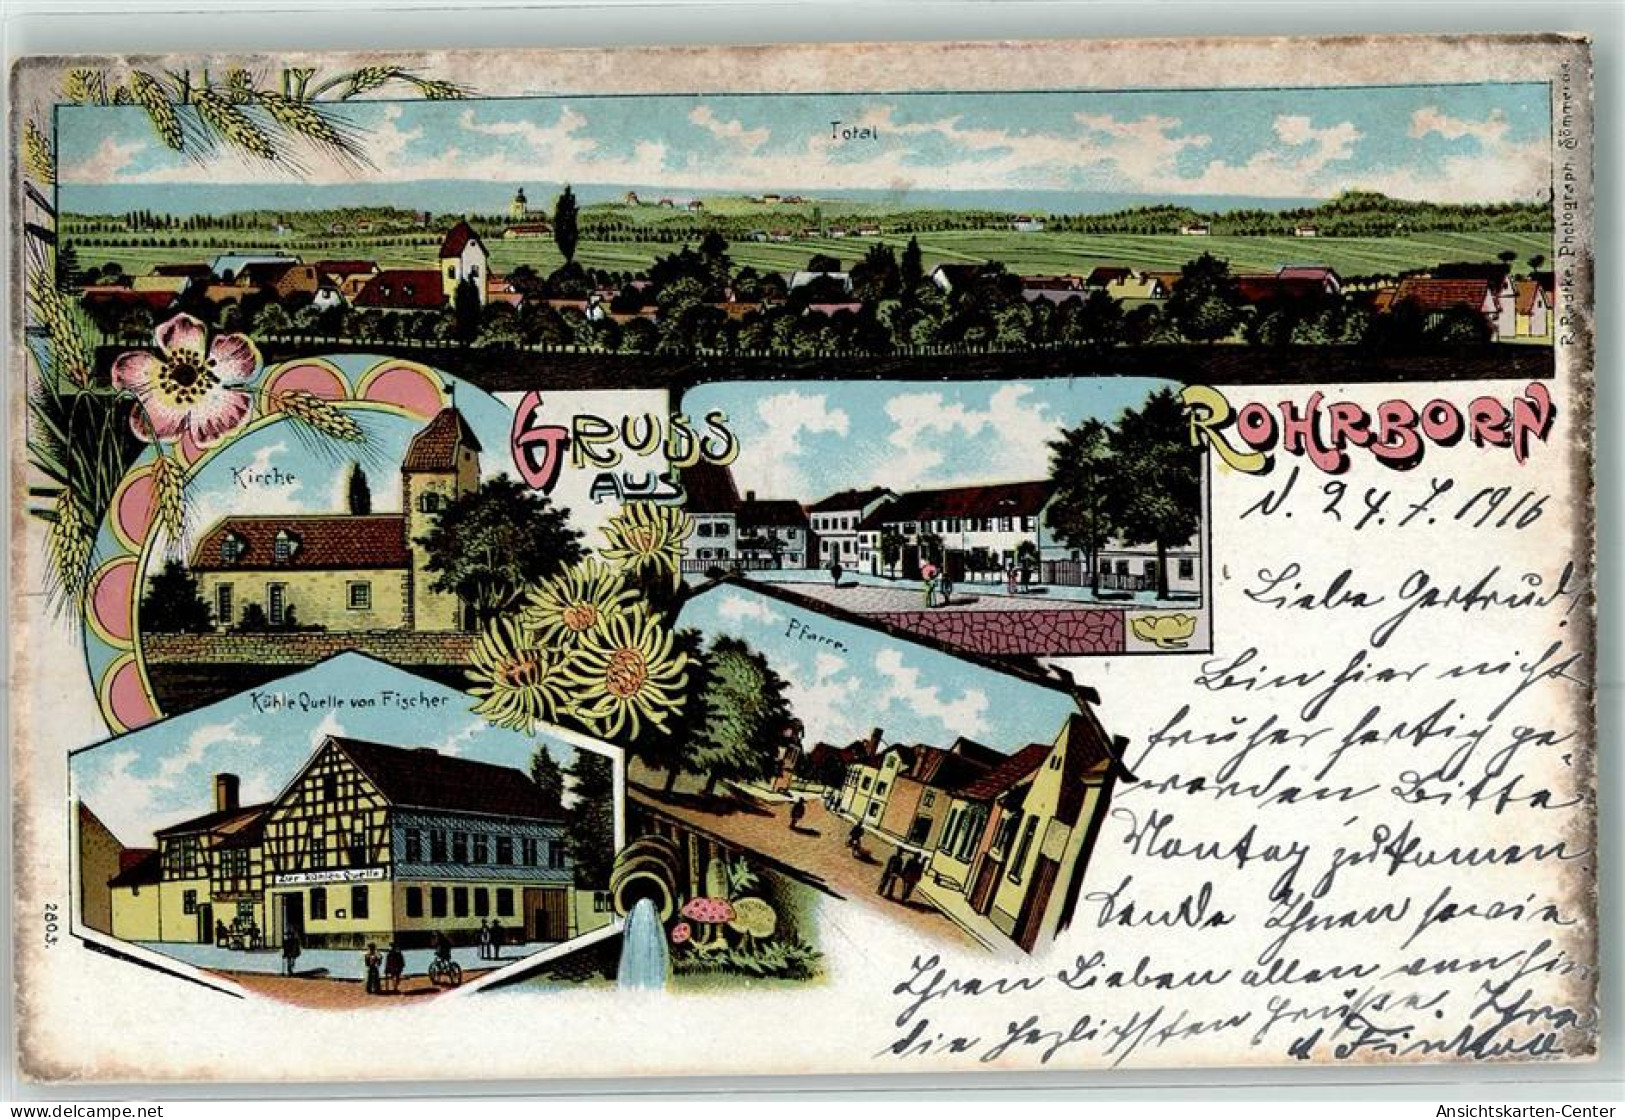 Total
R. Radtke, Photograph, Sömmerda.
GRUSS
AUS
ROHRBORN
Kirche
Pfarre.
Kühle Quelle von Fischer
Zur kühlen Quelle
2803.
d. 24.7.1916
Liebe Gertrud,
Bin hier nicht
früher fertig ge-
worden Bitte
Montag zu kommen
Sende Ihnen sowie
Ihren Lieben allen von hir
die herzlichsten Grüße. Ihre
delcampe.net
Ansichtskarten-Center